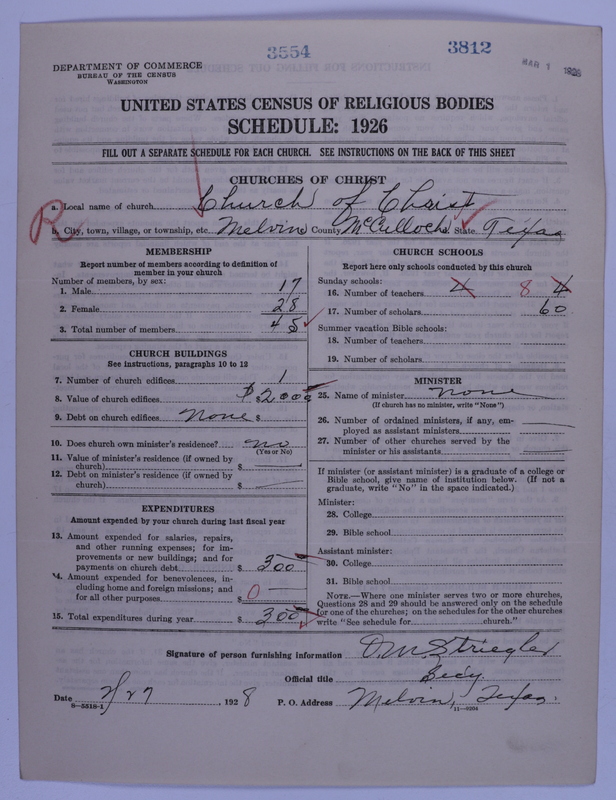 3554
3812
MAR 1 1928
DEPARTMENT OF COMMERCE
BUREAU OF THE CENSUS
WASHINGTON
UNITED STATES CENSUS OF RELIGIOUS BODIES
SCHEDULE: 1926
FILL OUT A SEPARATE SCHEDULE FOR EACH CHURCH. SEE INSTRUCTIONS ON THE BACK OF THIS SHEET
CHURCHES OF CHRIST
a. Local name of church Church of Christ
R
b. City, town, village, or township, etc. Melvin County McCulloch State Texas
MEMBERSHIP
Report number of members according to definition of
member in your church
Number of members, by sex:
1. Male 17
2. Female 28
3. Total number of members 45
CHURCH BUILDINGS
See instructions, paragraphs 10 to 12
7. Number of church edifices 1
8. Value of church edifices $ $2000
9. Debt on church edifices None $
10. Does church own minister's residence? no
(Yes or No)
11. Value of minister's residence (if owned by
church) $
12. Debt on minister's residence (if owned by
church) $
EXPENDITURES
Amount expended by your church during last fiscal year
13. Amount expended for salaries, repairs,
and other running expenses; for im-
provements or new buildings; and for
payments on church debt $ 300
14. Amount expended for benevolences, in-
cluding home and foreign missions; and
for all other purposes $ 0
15. Total expenditures during year $ 300
CHURCH SCHOOLS
Report here only schools conducted by this church
Sunday schools:
16. Number of teachers 4 8 4
17. Number of scholars 60
Summer vacation Bible schools:
18. Number of teachers
19. Number of scholars
MINISTER
25. Name of minister none
(If church has no minister, write "None")
26. Number of ordained ministers, if any, em-
ployed as assistant ministers
27. Number of other churches served by the
minister or his assistants
If minister (or assistant minister) is a graduate of a college or
Bible school, give name of institution below. (If not a
graduate, write "No" in the space indicated.)
Minister:
28. College
29. Bible school
Assistant minister:
30. College
31. Bible school
NOTE.—Where one minister serves two or more churches,
Questions 28 and 29 should be answered only on the schedule
for one of the churches; on the schedules for the other churches
write "See schedule for church."
Signature of person furnishing information O.M. Striegler
Official title
Date 2/27, 1928 P. O. Address Melvin, Texas.
8-5518-1
11-9204